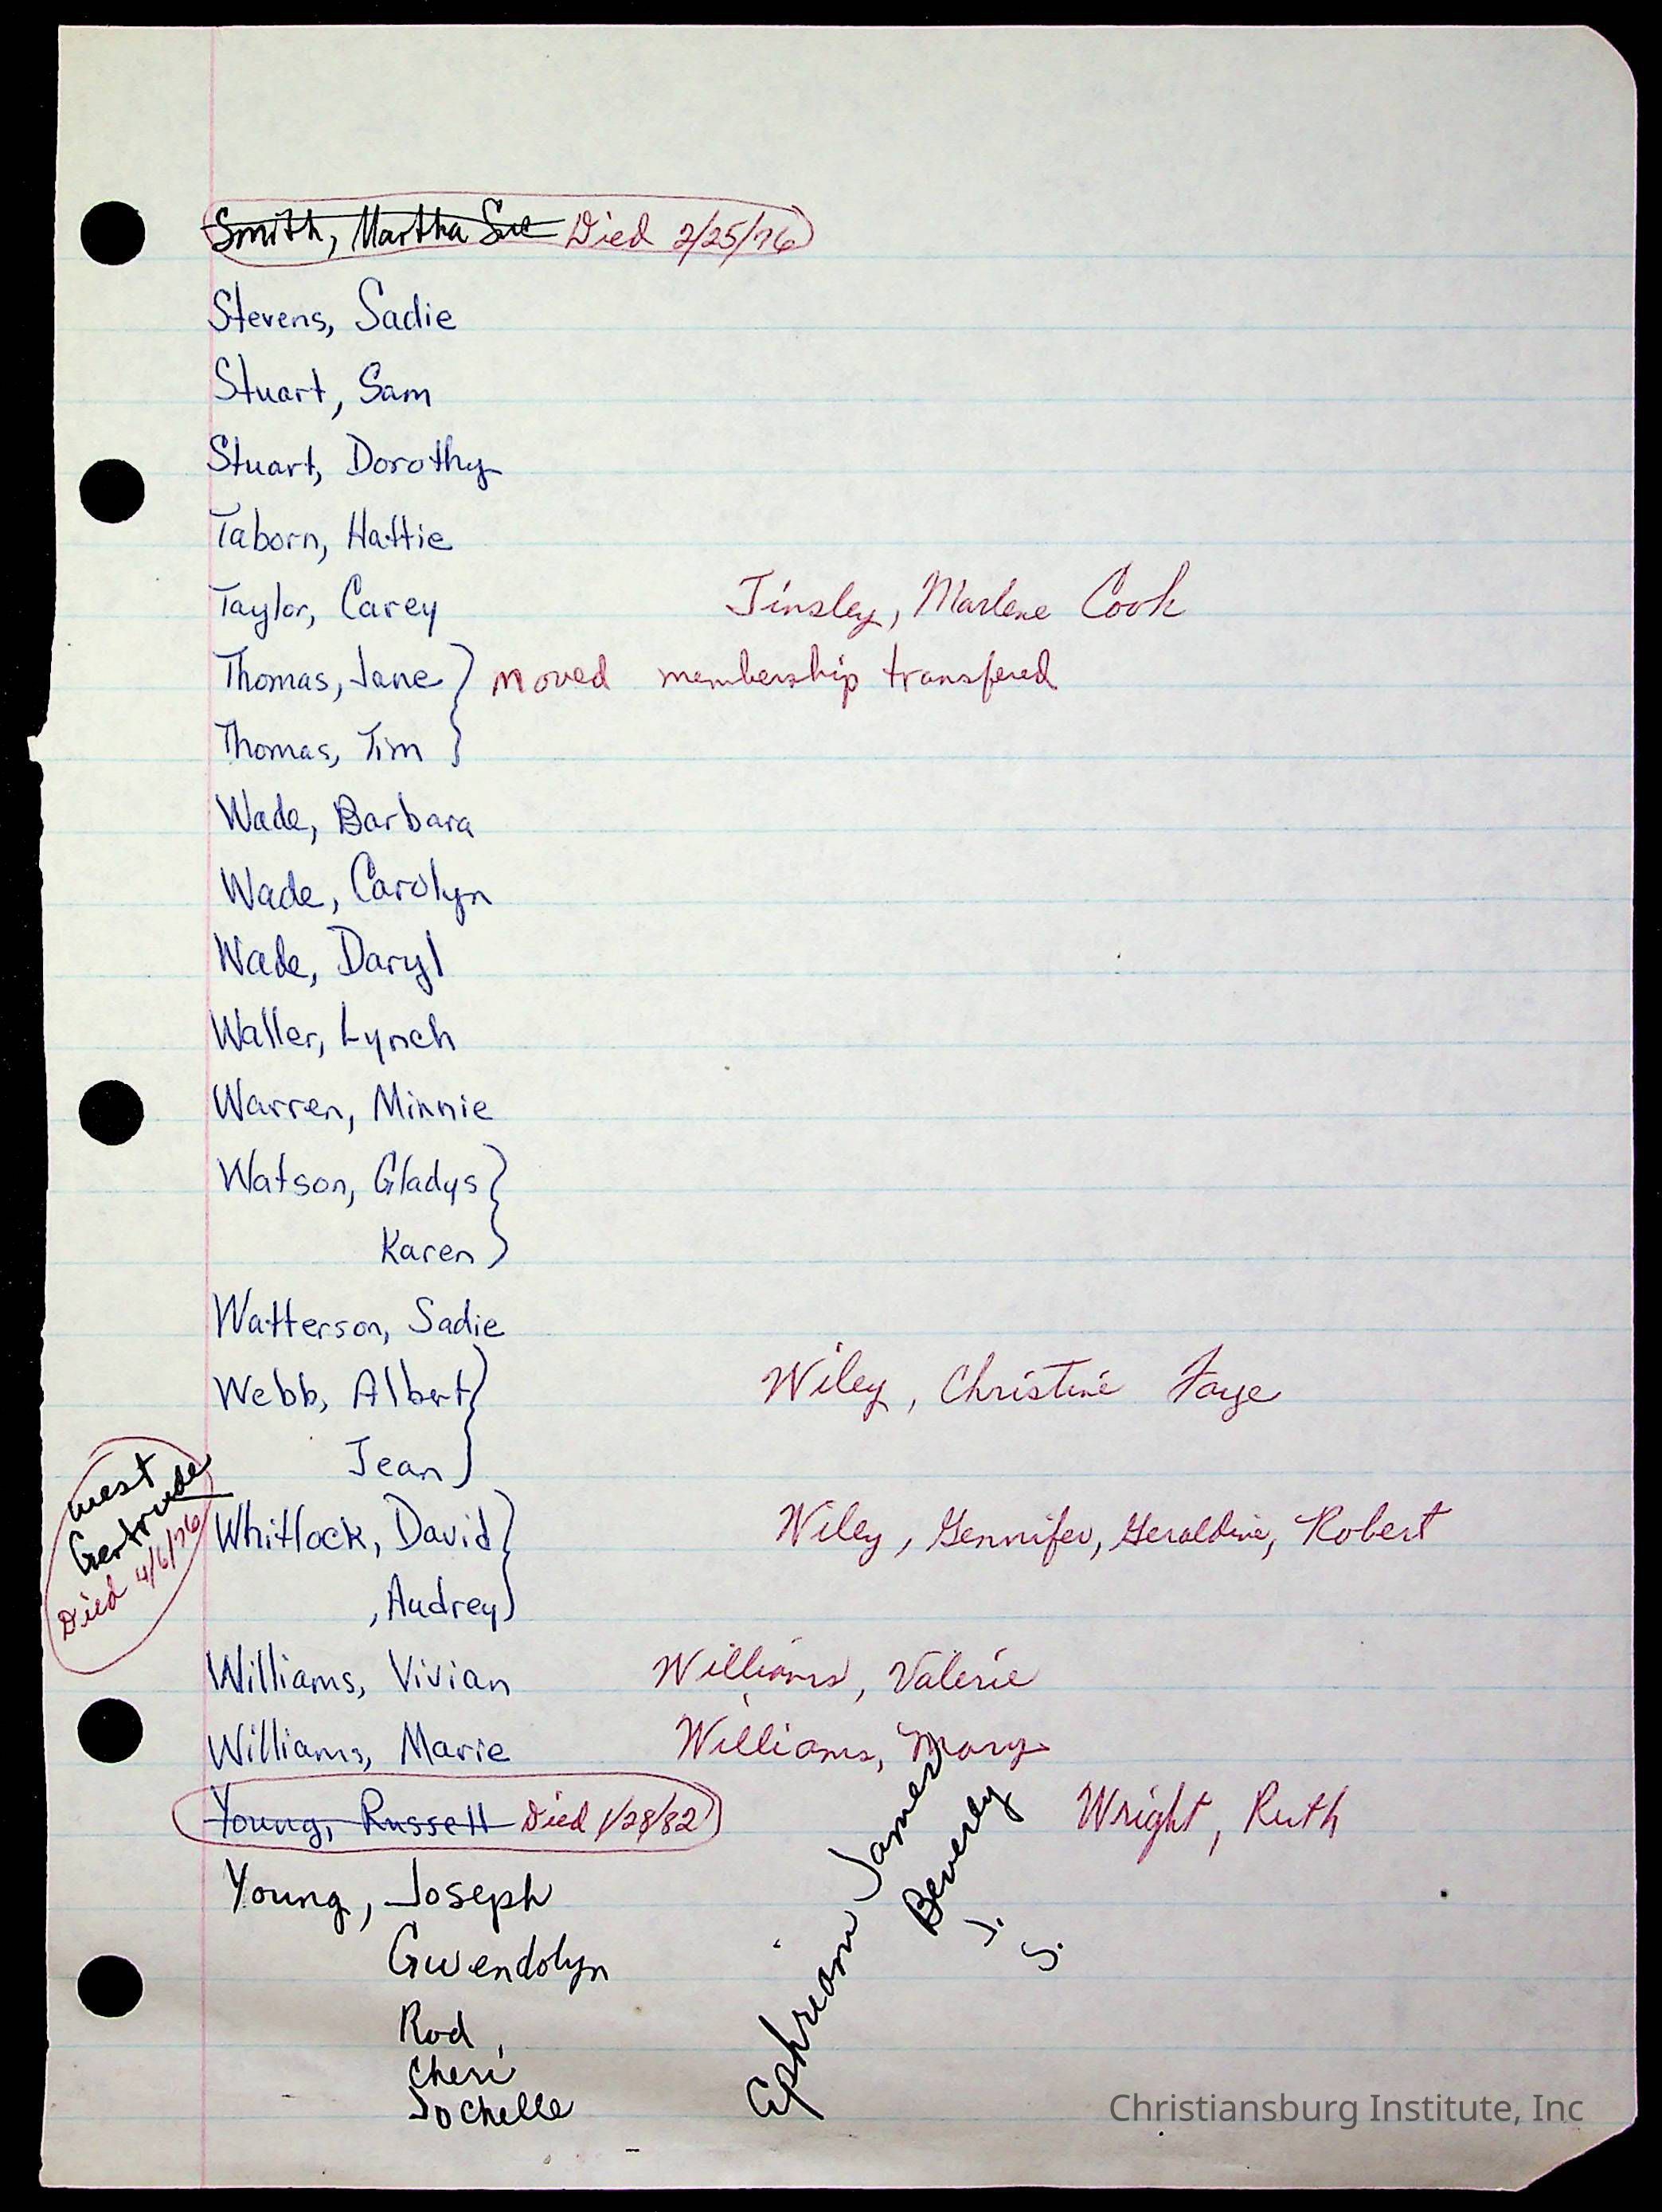 Smith, Martha Sue Died 2/25/76
Stevens, Sadie
Stuart, Sam
Stuart, Dorothy
Taborn, Hattie
Taylor, Carey Tinsley, Marlene Cook
Thomas, Jane } moved membership transfered
Thomas, Tim }
Wade, Barbara
Wade, Carolyn
Wade, Daryl
Waller, Lynch
Warren, Minnie
Watson, Gladys }
Karen }
Watterson, Sadie
Webb, Albert } Wiley, Christine Faye
Jean }
West
Gertrude
Died 4/6/76
Whitlock, David } Wiley, Gennifer, Geraldine, Robert
, Audrey }
Williams, Vivian Williams, Valerie
Williams, Marie Williams, Mary
Young, Russell Died 1/28/82 Wright, Ruth
Young, Joseph
Gwendolyn
Rod
Cheri
Jochelle
Ephriam James
Beverly
J.
S.
Christiansburg Institute, Inc